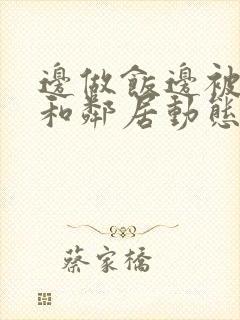 邊做飯邊被
和鄰居動態
蔡家橋